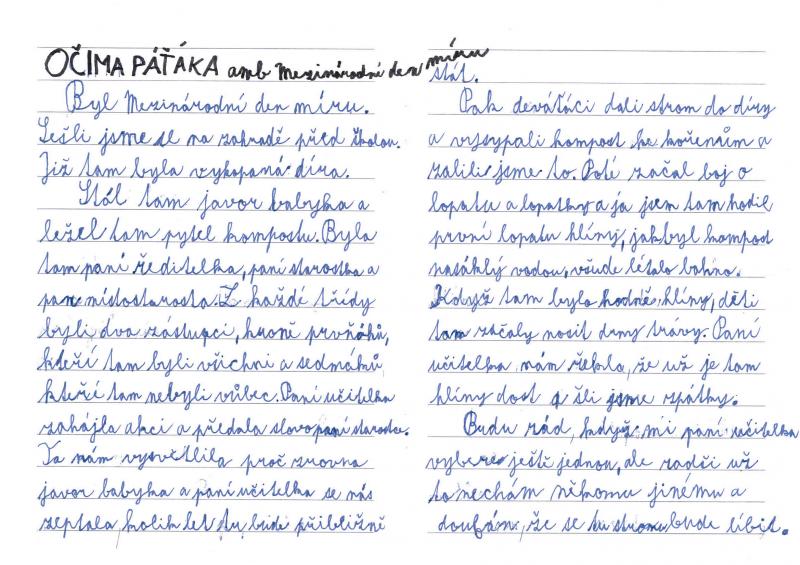 OČIMA PÁŤÁKA aneb Mezinárodní den míru
Byl Mezinárodní den míru.
Sešli jsme se na zahradě před školou.
Již tam byla vykopaná díra.
Stál tam javor babyka a
ležel tam pytel kompostu. Byla
tam paní ředitelka, paní starostka a
pan místostarosta. Z každé třídy
byli dva zástupci, kromě prvňáků,
kteří tam byli všichni a sedmáků,
kteří tam nebyli vůbec. Paní učitelka
zahájla akci a předala slovo paní starostce.
Ta nám vysvětlila proč zrovna
javor babyka a paní učitelka se nás
zeptala, kolik let tu bude přibližně
stát.
Pak deváťáci dali strom do díry
a vysypali kompost ke kořenům a
zalili jsme to. Poté začal boj o
lopatu a lopatky a já jsem tam hodil
první lopatu hlíny, jak byl kompost
nasáklý vodou, všude létalo bahno.
Když tam bylo hodně hlíny, děti
tam začaly nosit drny trávy. Paní
učitelka nám řekla, že už je tam
hlíny dost a šli jsme zpátky.
Budu rád, když mi paní učitelka
vybere ještě jednou, ale radši už
to nechám někomu jinému a
doufám, že se tu stromu bude líbit.